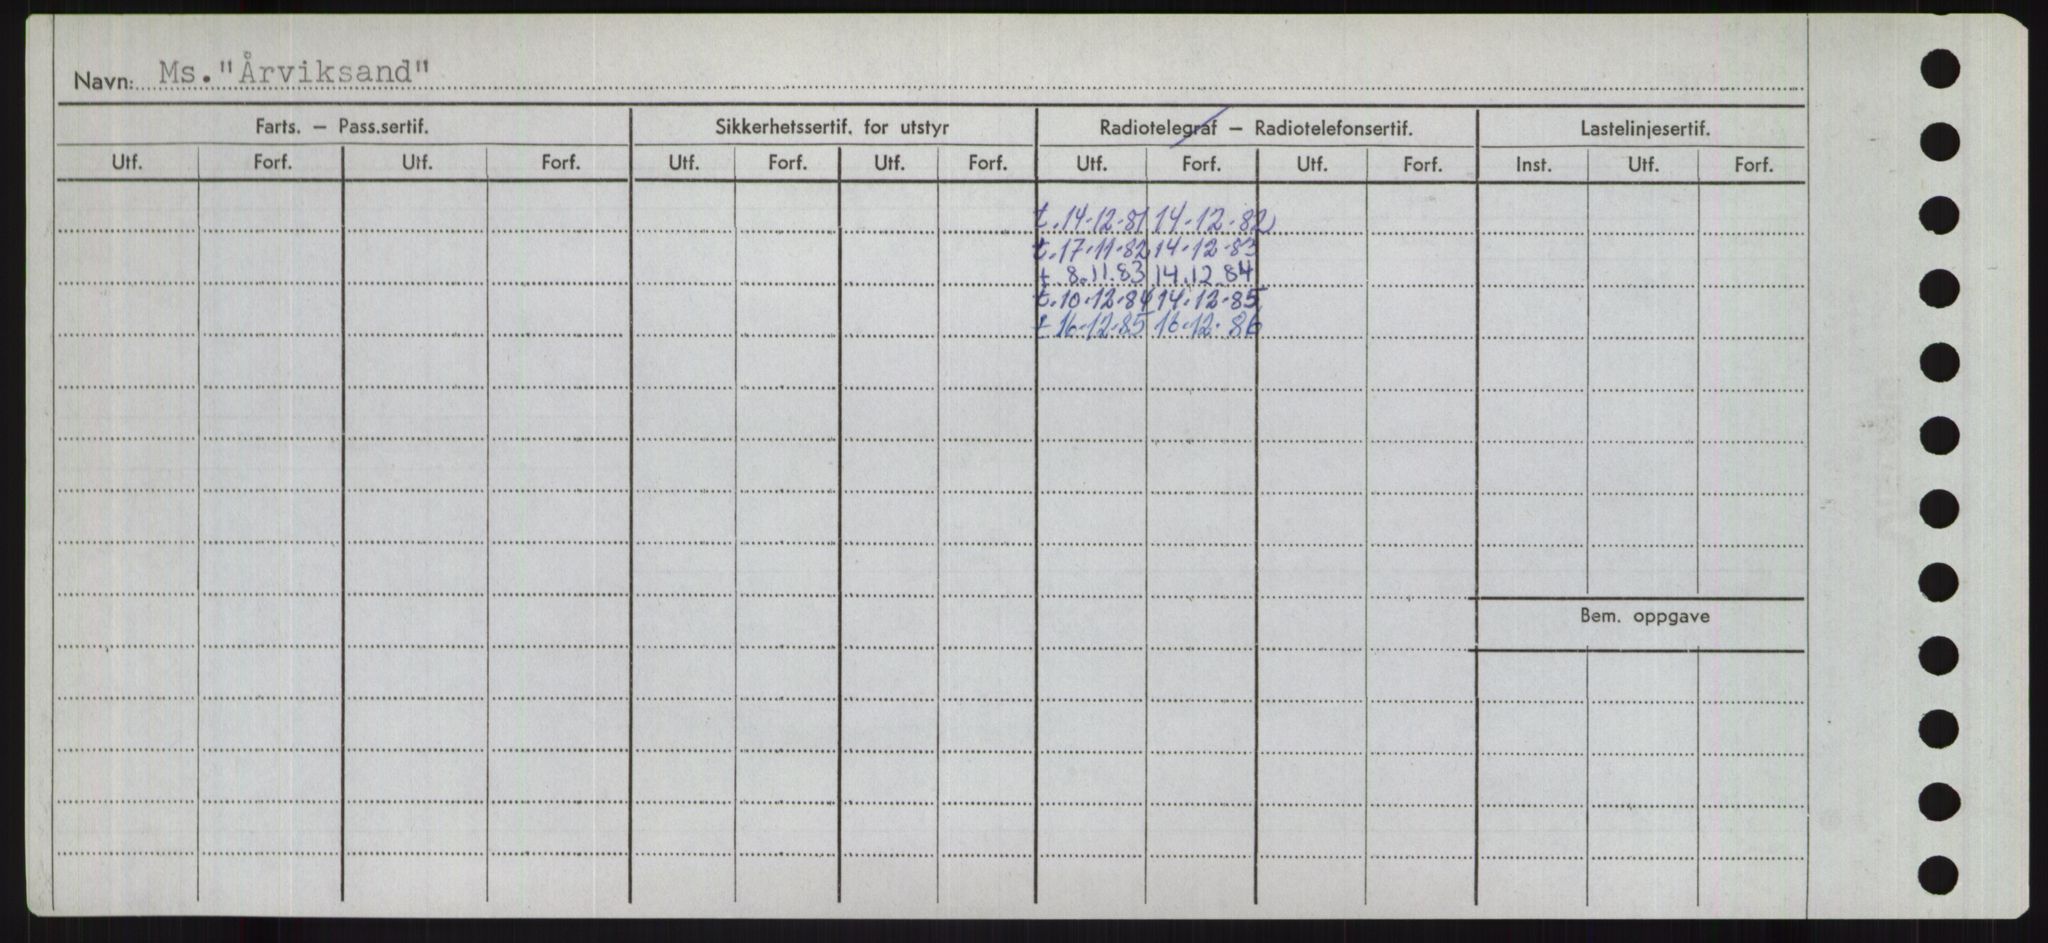 Navn: Ms."Årviksand"
Farts. – Pass.sertif. Sikkerhetssertif. for utstyr Radiotelegraf – Radiotelefonsertif. Lastelinjesertif.
Utf. Forf. Utf. Forf. Utf. Forf. Utf. Forf. Utf. Forf. Utf. Forf. Inst. Utf. Forf.
t.14-12-81 14-12-82
t.17-11-82 14-12-83
t 8.11.83 14.12.84
t.10-12-84 14-12-85
t 16-12-85 16-12-86
Bem. oppgave